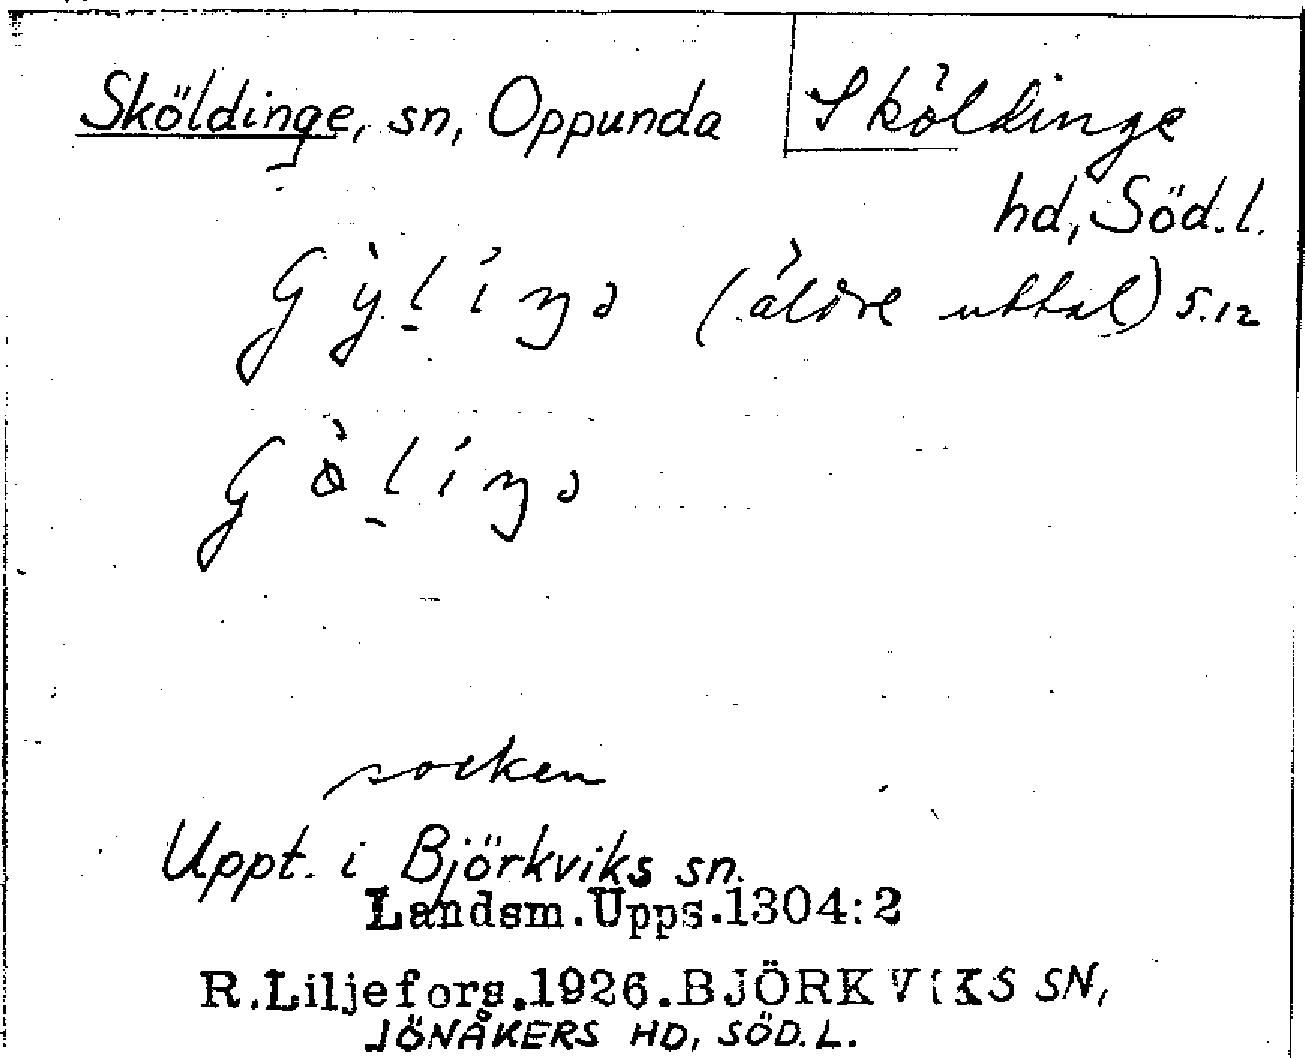 Sköldinge, sn, Oppunda Sköldinge
hd, Söd.l.
(äldre uttal) s.12
socken
Uppt. i Björkviks sn.
Landsm.Upps.1304:2
R.Liljefors.1926.BJÖRKVIKS SN,
JÖNÅKERS HD, SÖD.L.